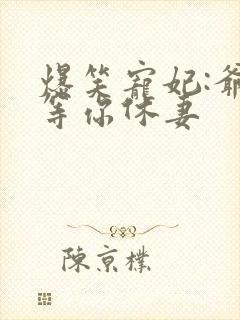 爆笑寵妃:爺
等你休妻
陳京樸